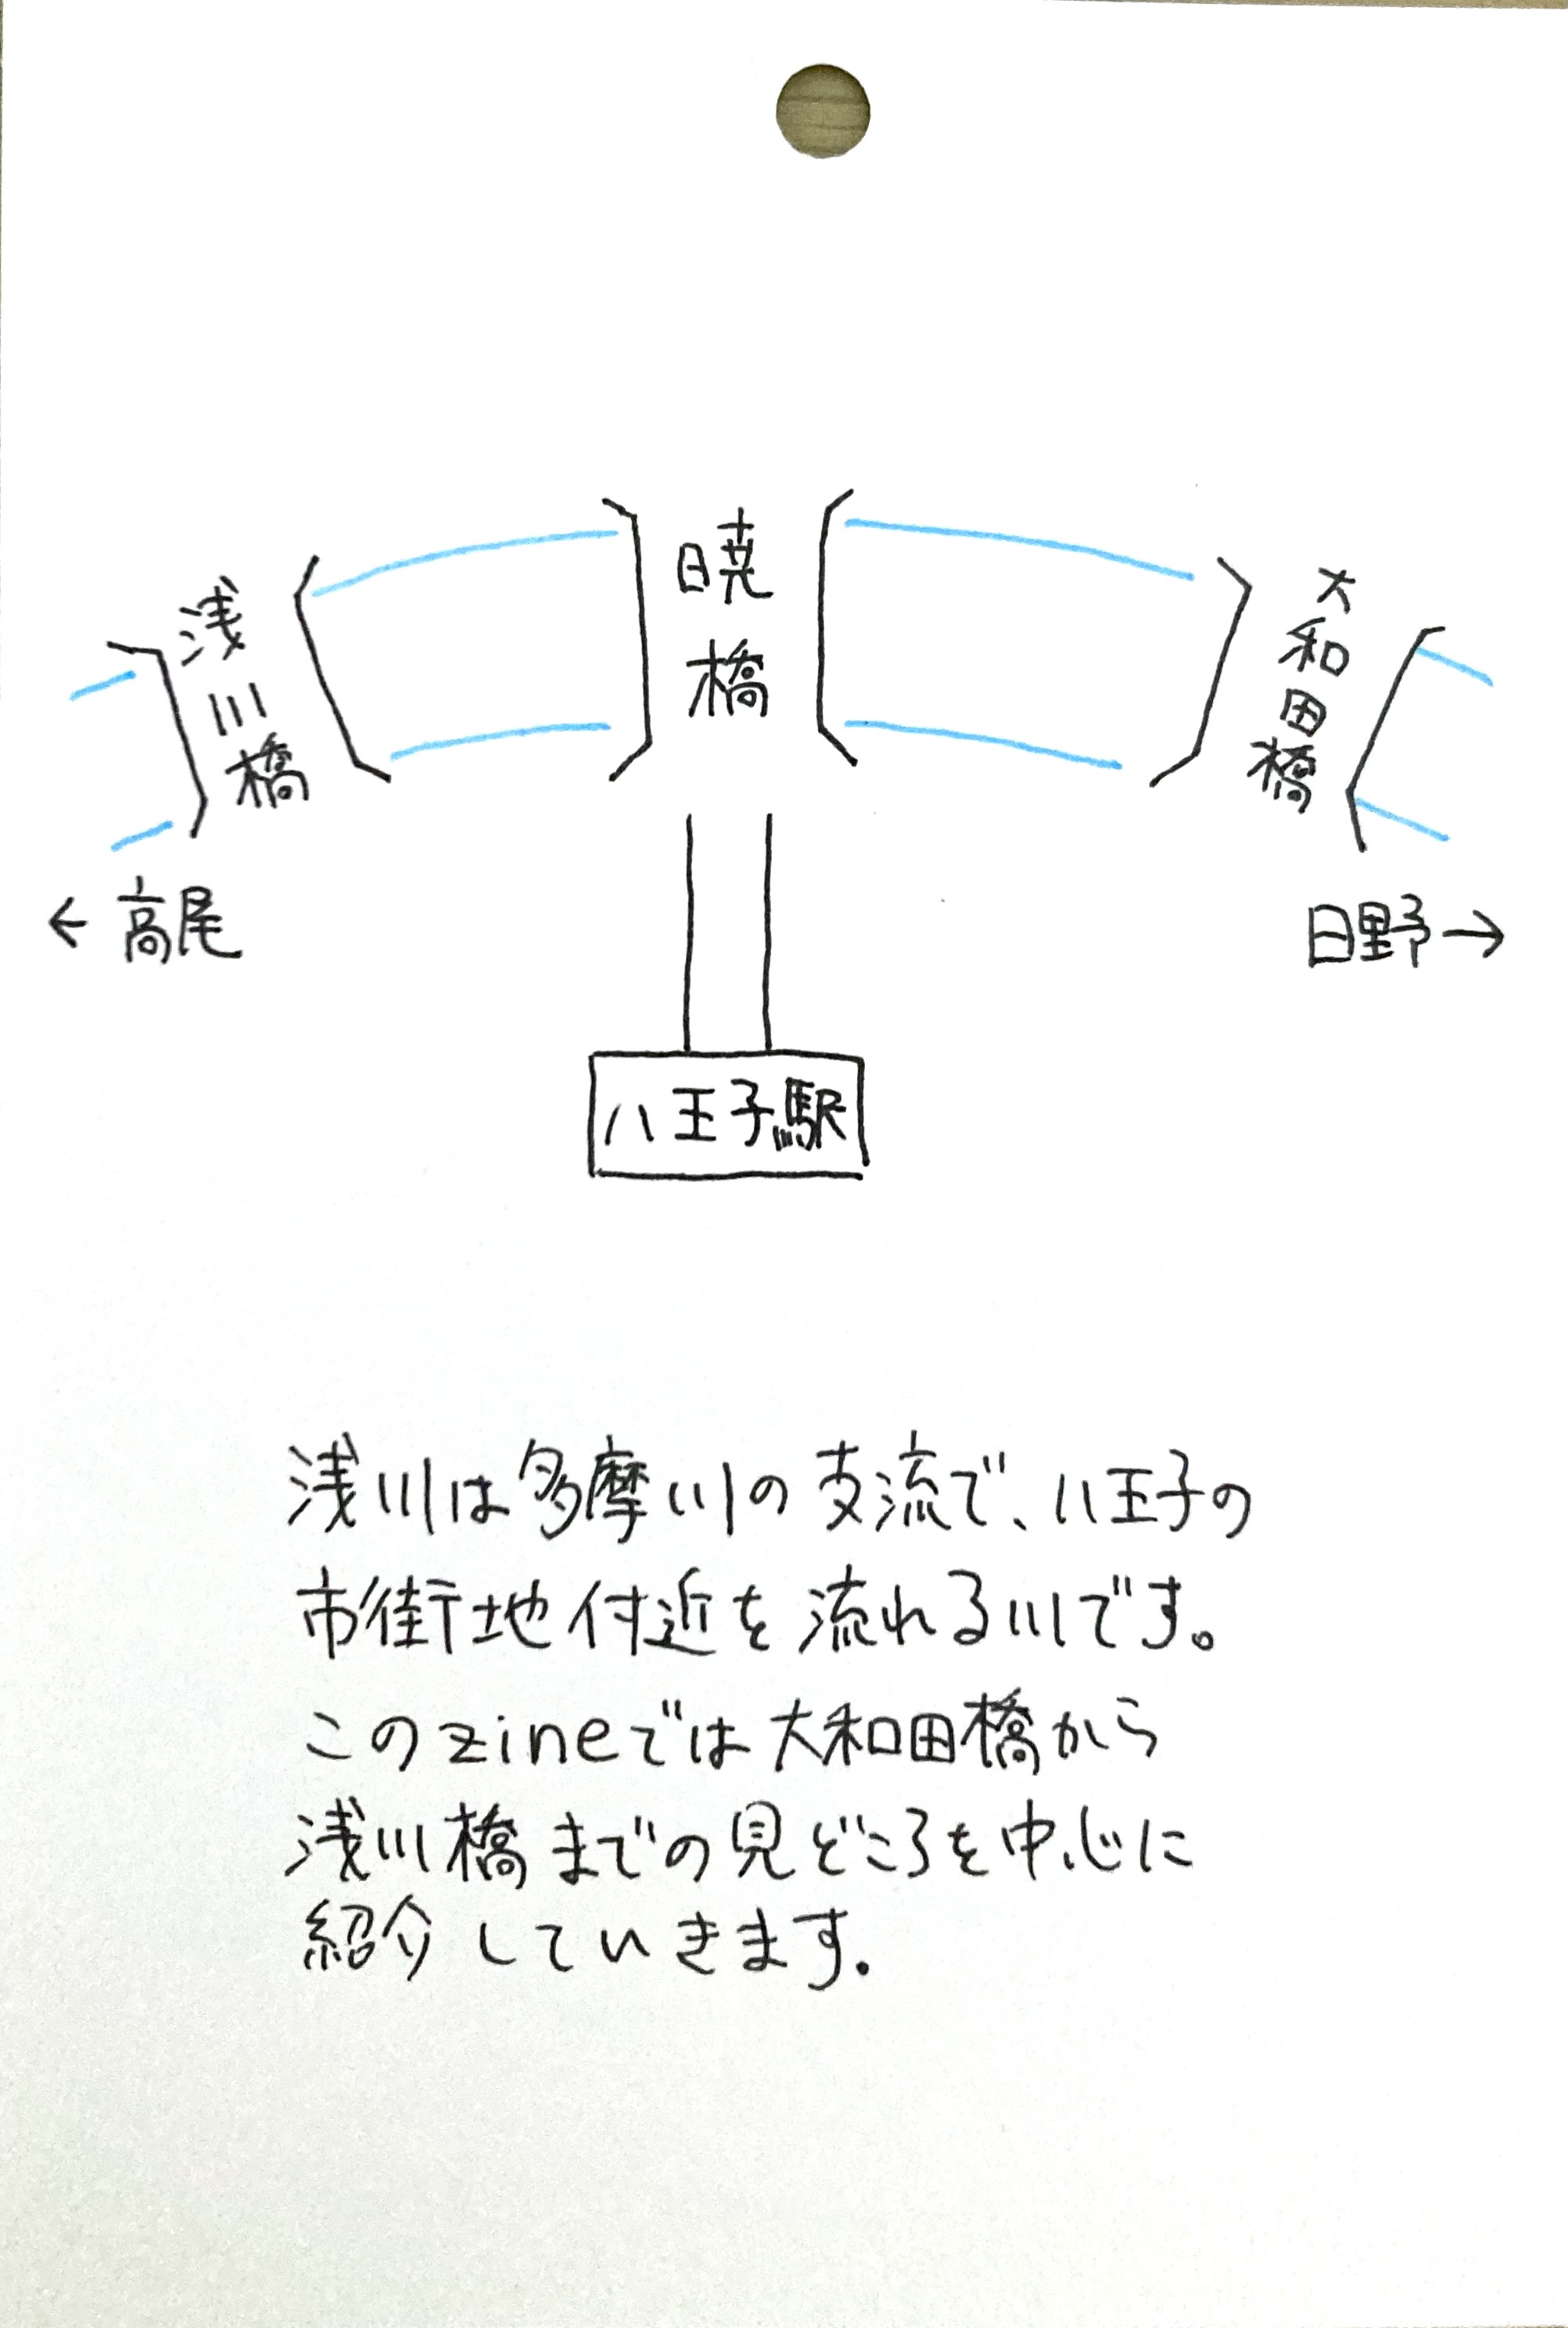 浅川橋
暁橋
大和田橋
← 高尾
日野 →
八王子駅
浅川は多摩川の支流で、八王子の
市街地付近を流れる川です。
このzineでは大和田橋から
浅川橋までの見どころを中心に
紹介していきます.